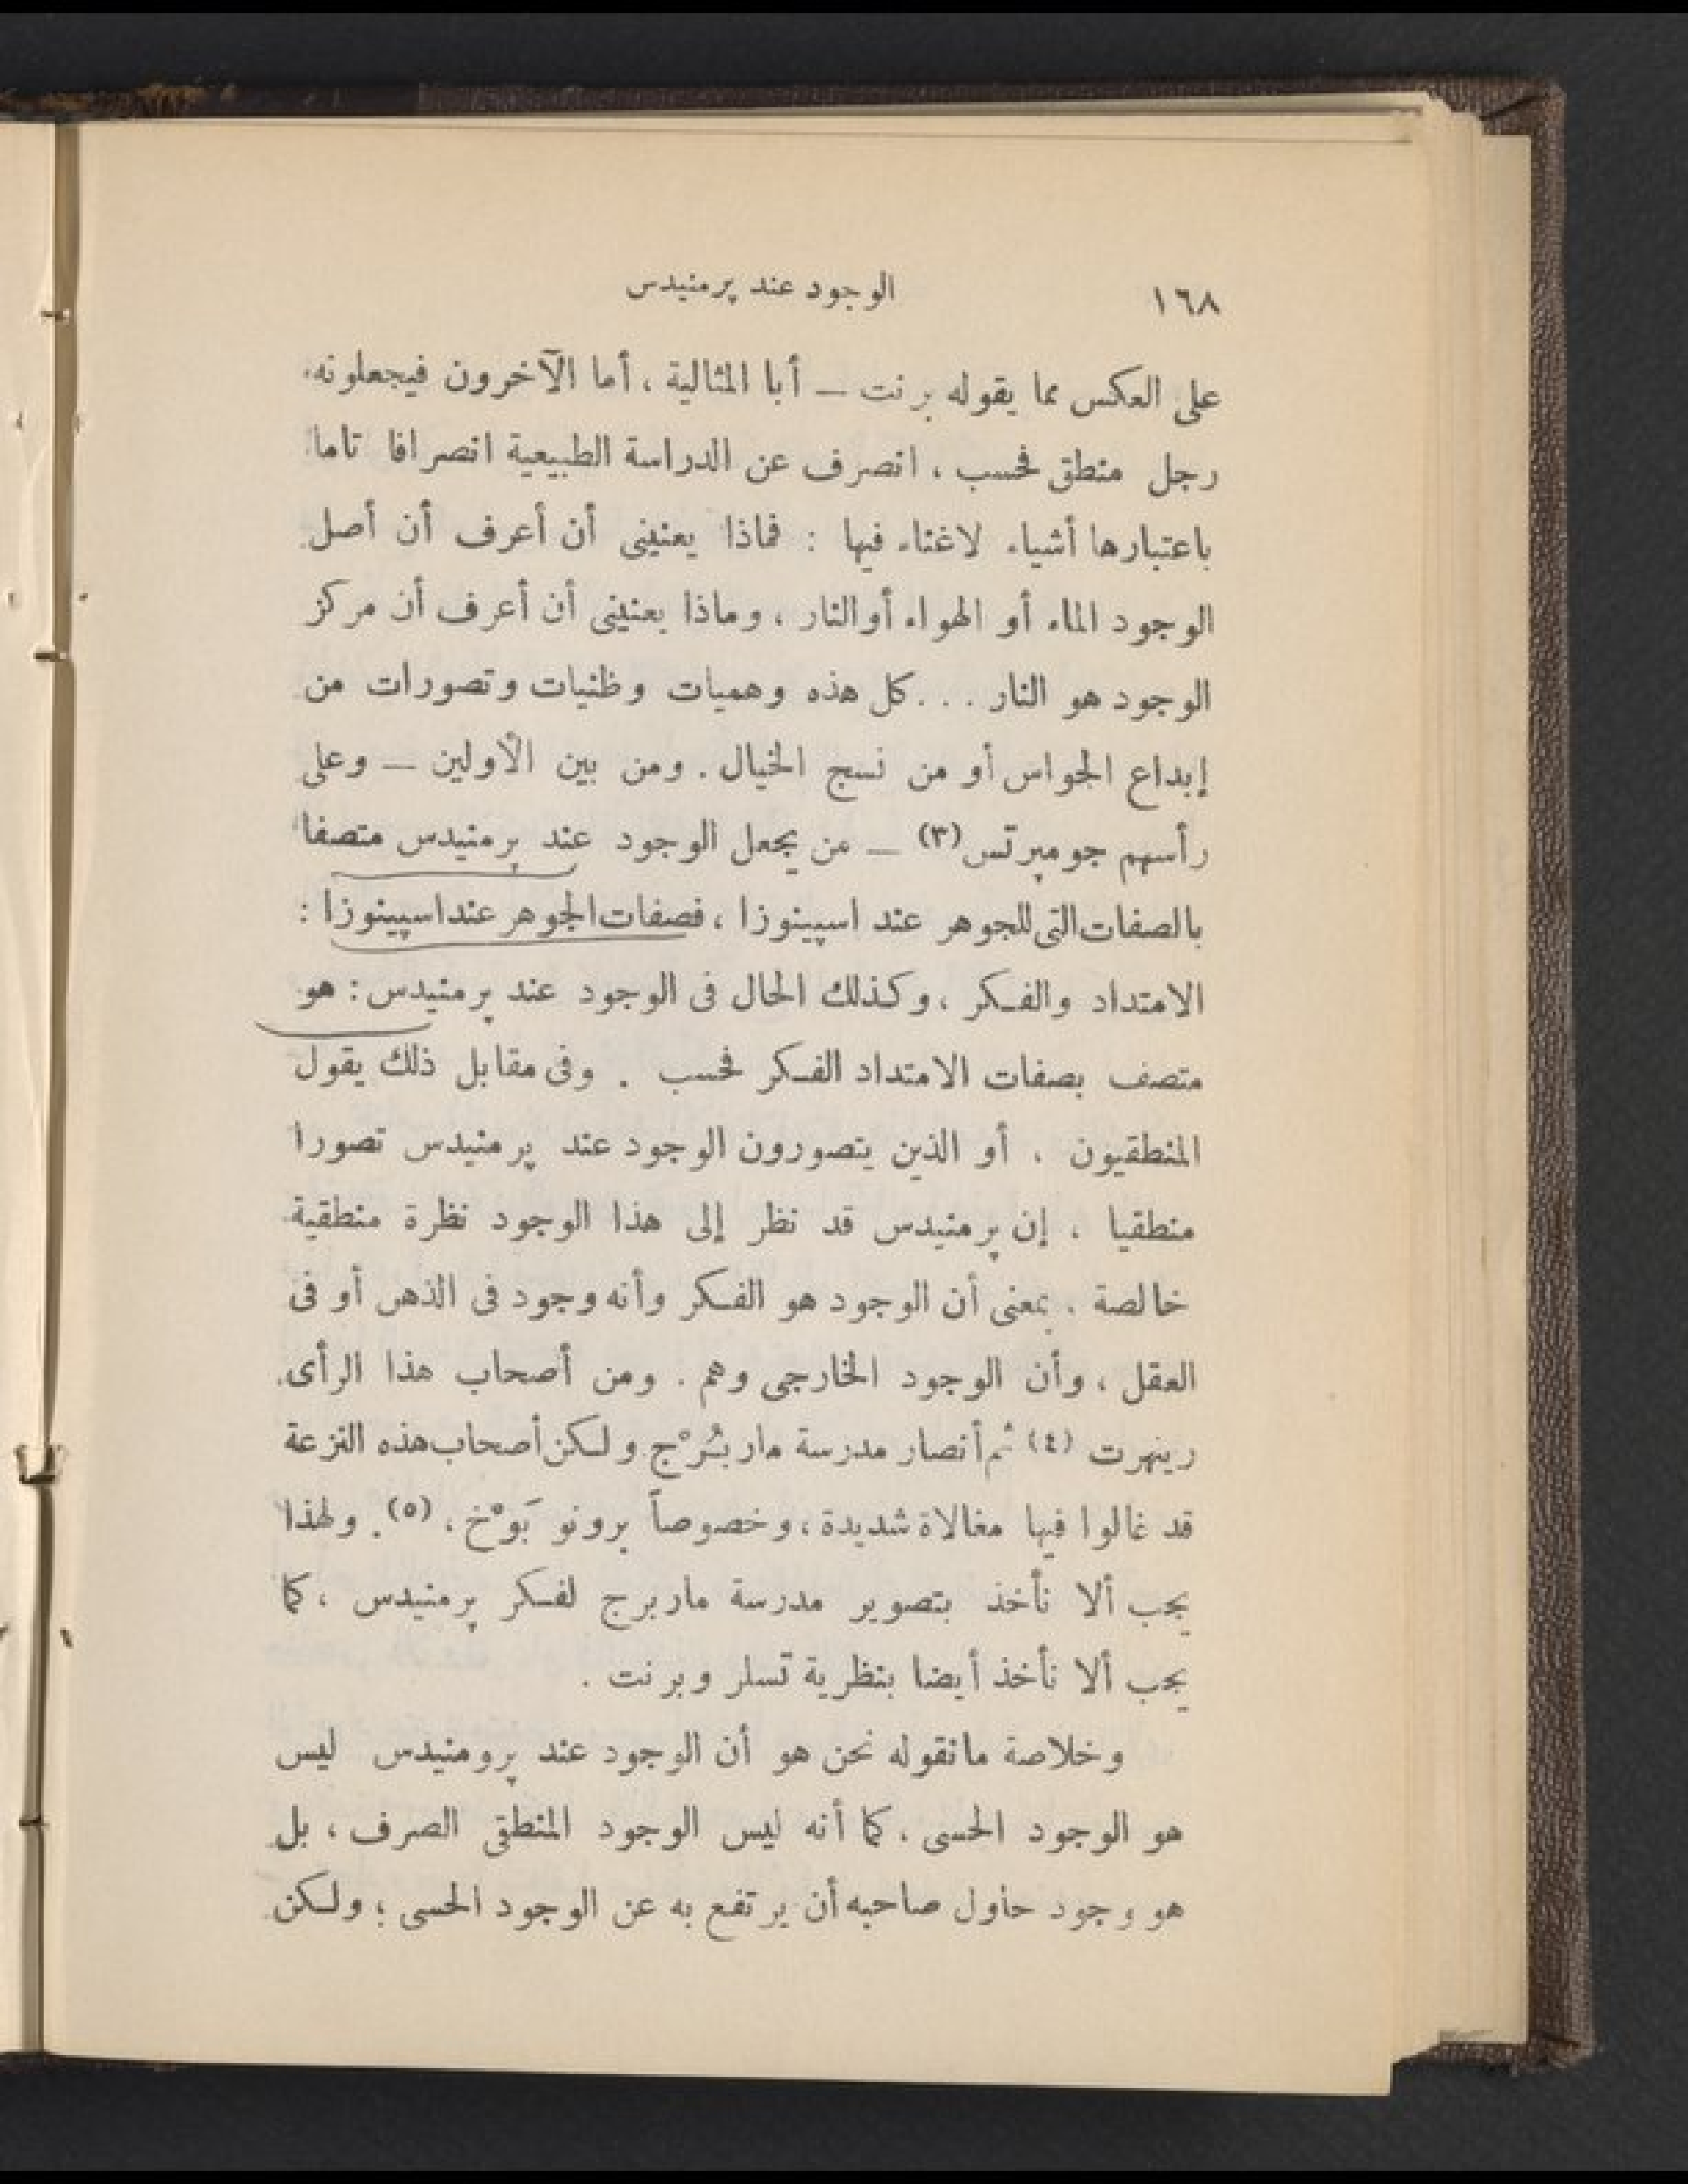 ١٦٨ الوجود عند پرمنيدس
على العكس مما يقوله برنت — أبا المثالية ، أما الآخرون فيجعلونه
رجل منطق فحسب ، انصرف عن الدراسة الطبيعية انصرافا تاما
باعتبارها أشياء لاغناء فيها : فماذا يعنينى أن أعرف أن أصل
الوجود الماء أو الهواء أوالنار ، وماذا يعنينى أن أعرف أن مركز
الوجود هو النار . . . كل هذه وهميات وظنيات وتصورات من
إبداع الحواس أو من نسج الخيال . ومن بين الأولين — وعلى
رأسهم جومپرتس (٣) — من يجعل الوجود عند پرمنيدس متصفا
بالصفات التى للجوهر عند اسپينوزا ، فصفات الجوهر عند اسپينوزا :
الامتداد والفكر ، وكذلك الحال فى الوجود عند پرمنيدس : هو
متصف بصفات الامتداد الفكر فحسب . وفى مقابل ذلك يقول
المنطقيون ، أو الذين يتصورون الوجود عند پرمنيدس تصورا
منطقيا ، إن پرمنيدس قد نظر إلى هذا الوجود نظرة منطقية
خالصة ، بمعنى أن الوجود هو الفكر وأنه وجود فى الذهن أو فى
العقل ، وأن الوجود الخارجى وهم . ومن أصحاب هذا الرأى
رينهرت (٤) ثم أنصار مدرسة ماربُرْج . ولكن أصحاب هذه النزعة
قد غالوا فيها مغالاة شديدة ، وخصوصاً برونو بَوْخ ، (٥) . ولهذا
يجب ألا نأخذ بتصوير مدرسة ماربرج لفكر پرمنيدس ، كما
يجب ألا نأخذ أيضا بنظرية تسلر وبرنت .
وخلاصة مانقوله نحن هو أن الوجود عند پرومنيدس ليس
هو الوجود الحسى ، كما أنه ليس الوجود المنطقى الصرف ، بل
هو وجود حاول صاحبه أن يرتفع به عن الوجود الحسى ؛ ولكن